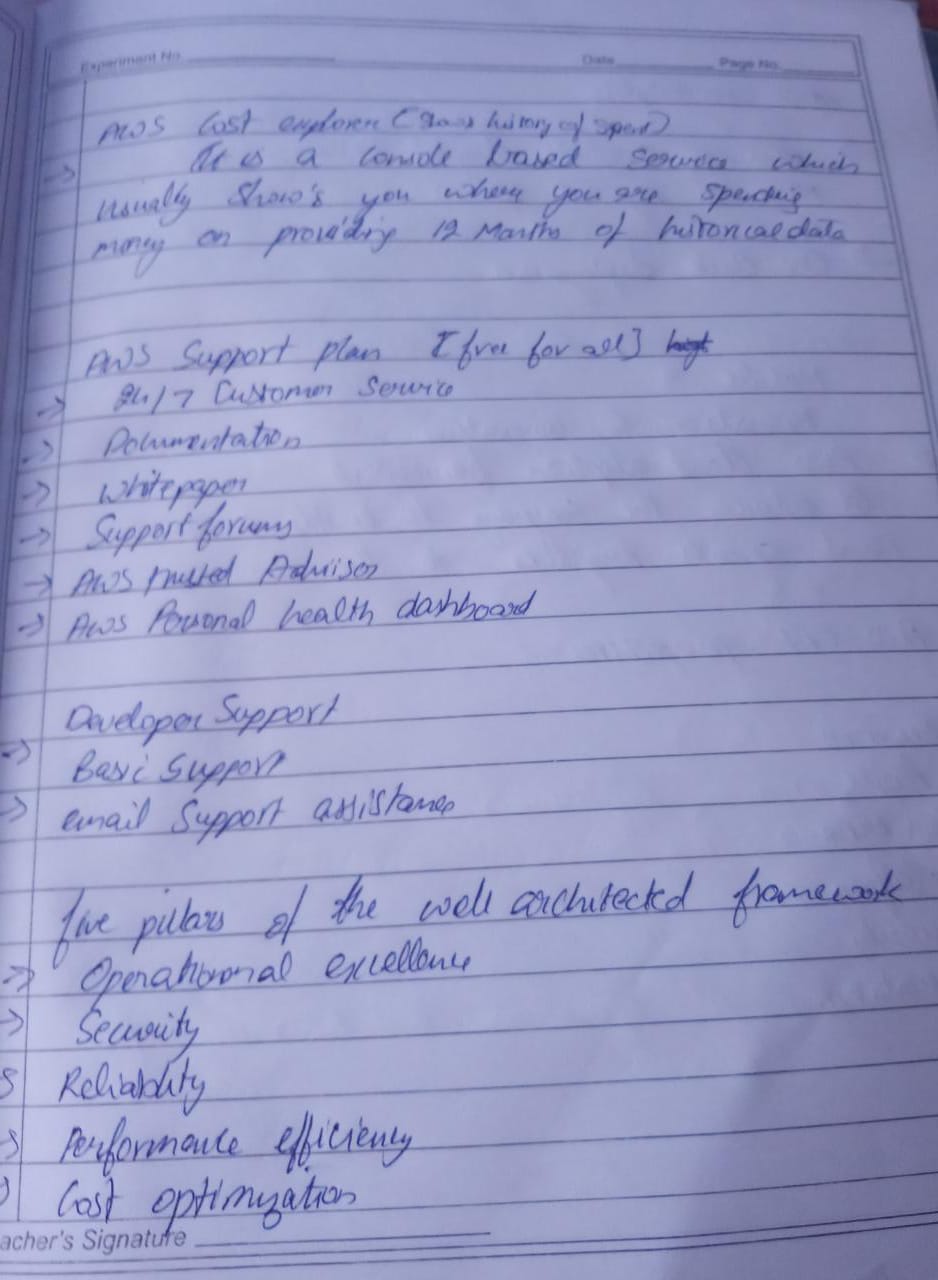 Experiment No.
Date
Page No.
AWS Cost explorer ( Shows history of spend)
→ It is a console based service which
usually Show's you where you are spending
money on providing 12 Months of historical data
AWS Support plan [free for all]
→ 24/7 Customer Service
→ Documentation
→ Whitepaper
→ Support forums
→ AWS trusted Advisor
→ AWS Personal health dashboard
Developer Support
→ Basic Support
→ email Support assistance
five pillars of the well architected framework
→ Operational excellence
→ Security
→ Reliability
→ Performance efficiency
→ Cost optimization
acher's Signature